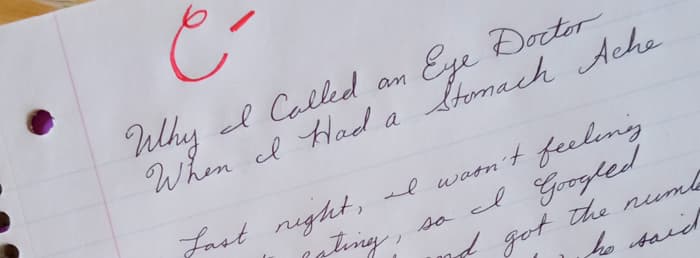 C-
Why I Called an Eye Doctor
When I Had a Stomach Ache
Last night, I wasn't feeling
eating, so I Googled
got the
he said